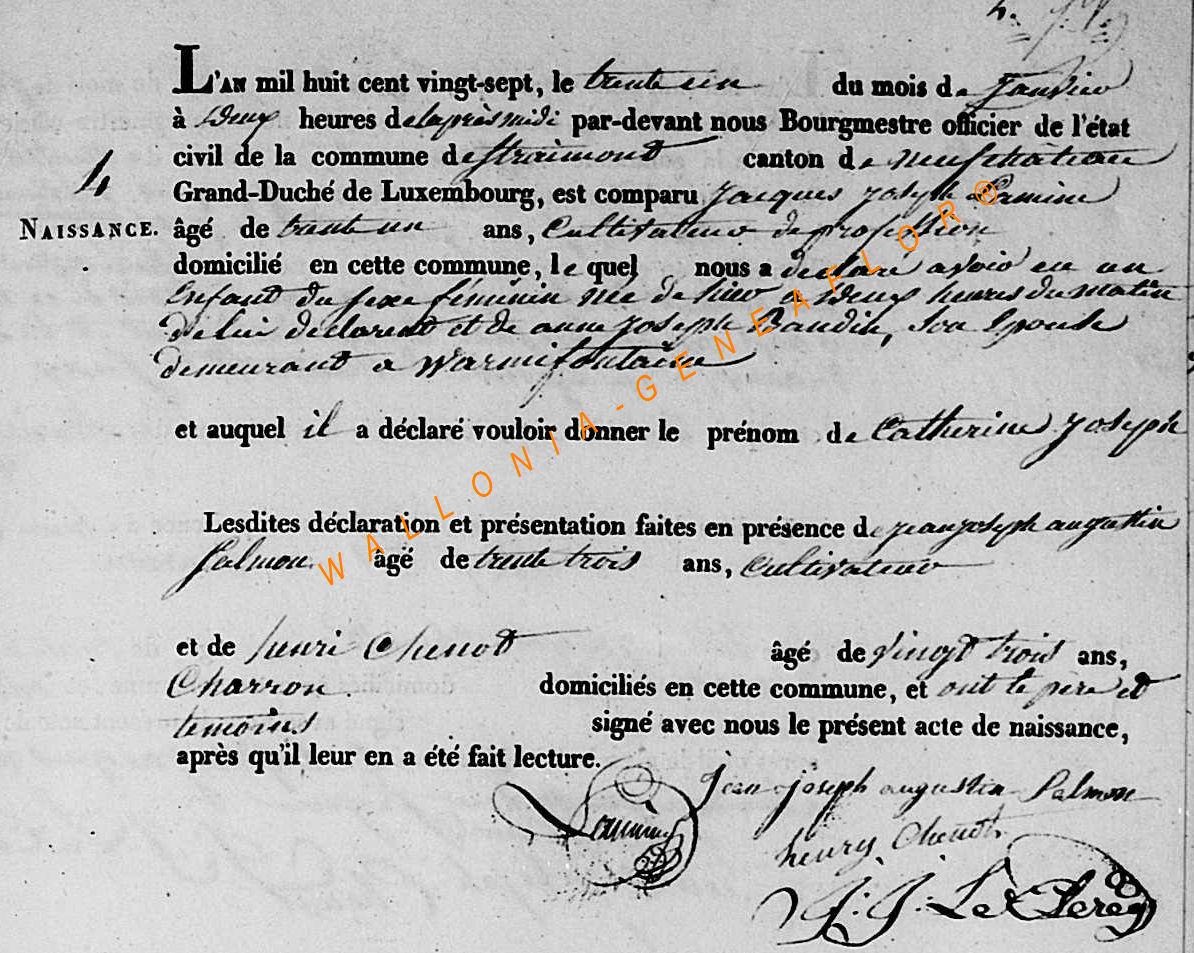 L'AN mil huit cent vingt-sept, le trente un du mois de Janvier
à deux heures de l'après midi par-devant nous Bourgmestre officier de l'état
civil de la commune de Straimont canton de neufchâteau
4
Grand-Duché de Luxembourg, est comparu Jacques Joseph Lamine
NAISSANCE. âgé de trente un ans, Cultivateur de profession
domicilié en cette commune, le quel nous a déclaré avoir eu un
Enfant du sexe féminin née de hier a deux heures du matin
de lui declarant et de anne Joseph Baudin, Son Epouse
demeurant a Warmifontaine
et auquel il a déclaré vouloir donner le prénom de Catherine Joseph
Lesdites déclaration et présentation faites en présence de jean joseph augustin
Salmon âgé de trente trois ans, Cultivateur
et de henri Chenot âgé de vingt trois ans,
Charron domiciliés en cette commune, et ont le père et
temoins signé avec nous le présent acte de naissance,
après qu'il leur en a été fait lecture.
Jean joseph augustin Salmon
Lamine
henry Chenot
J: J: Le Clereq
WALLONIA-GENEAFLOR®